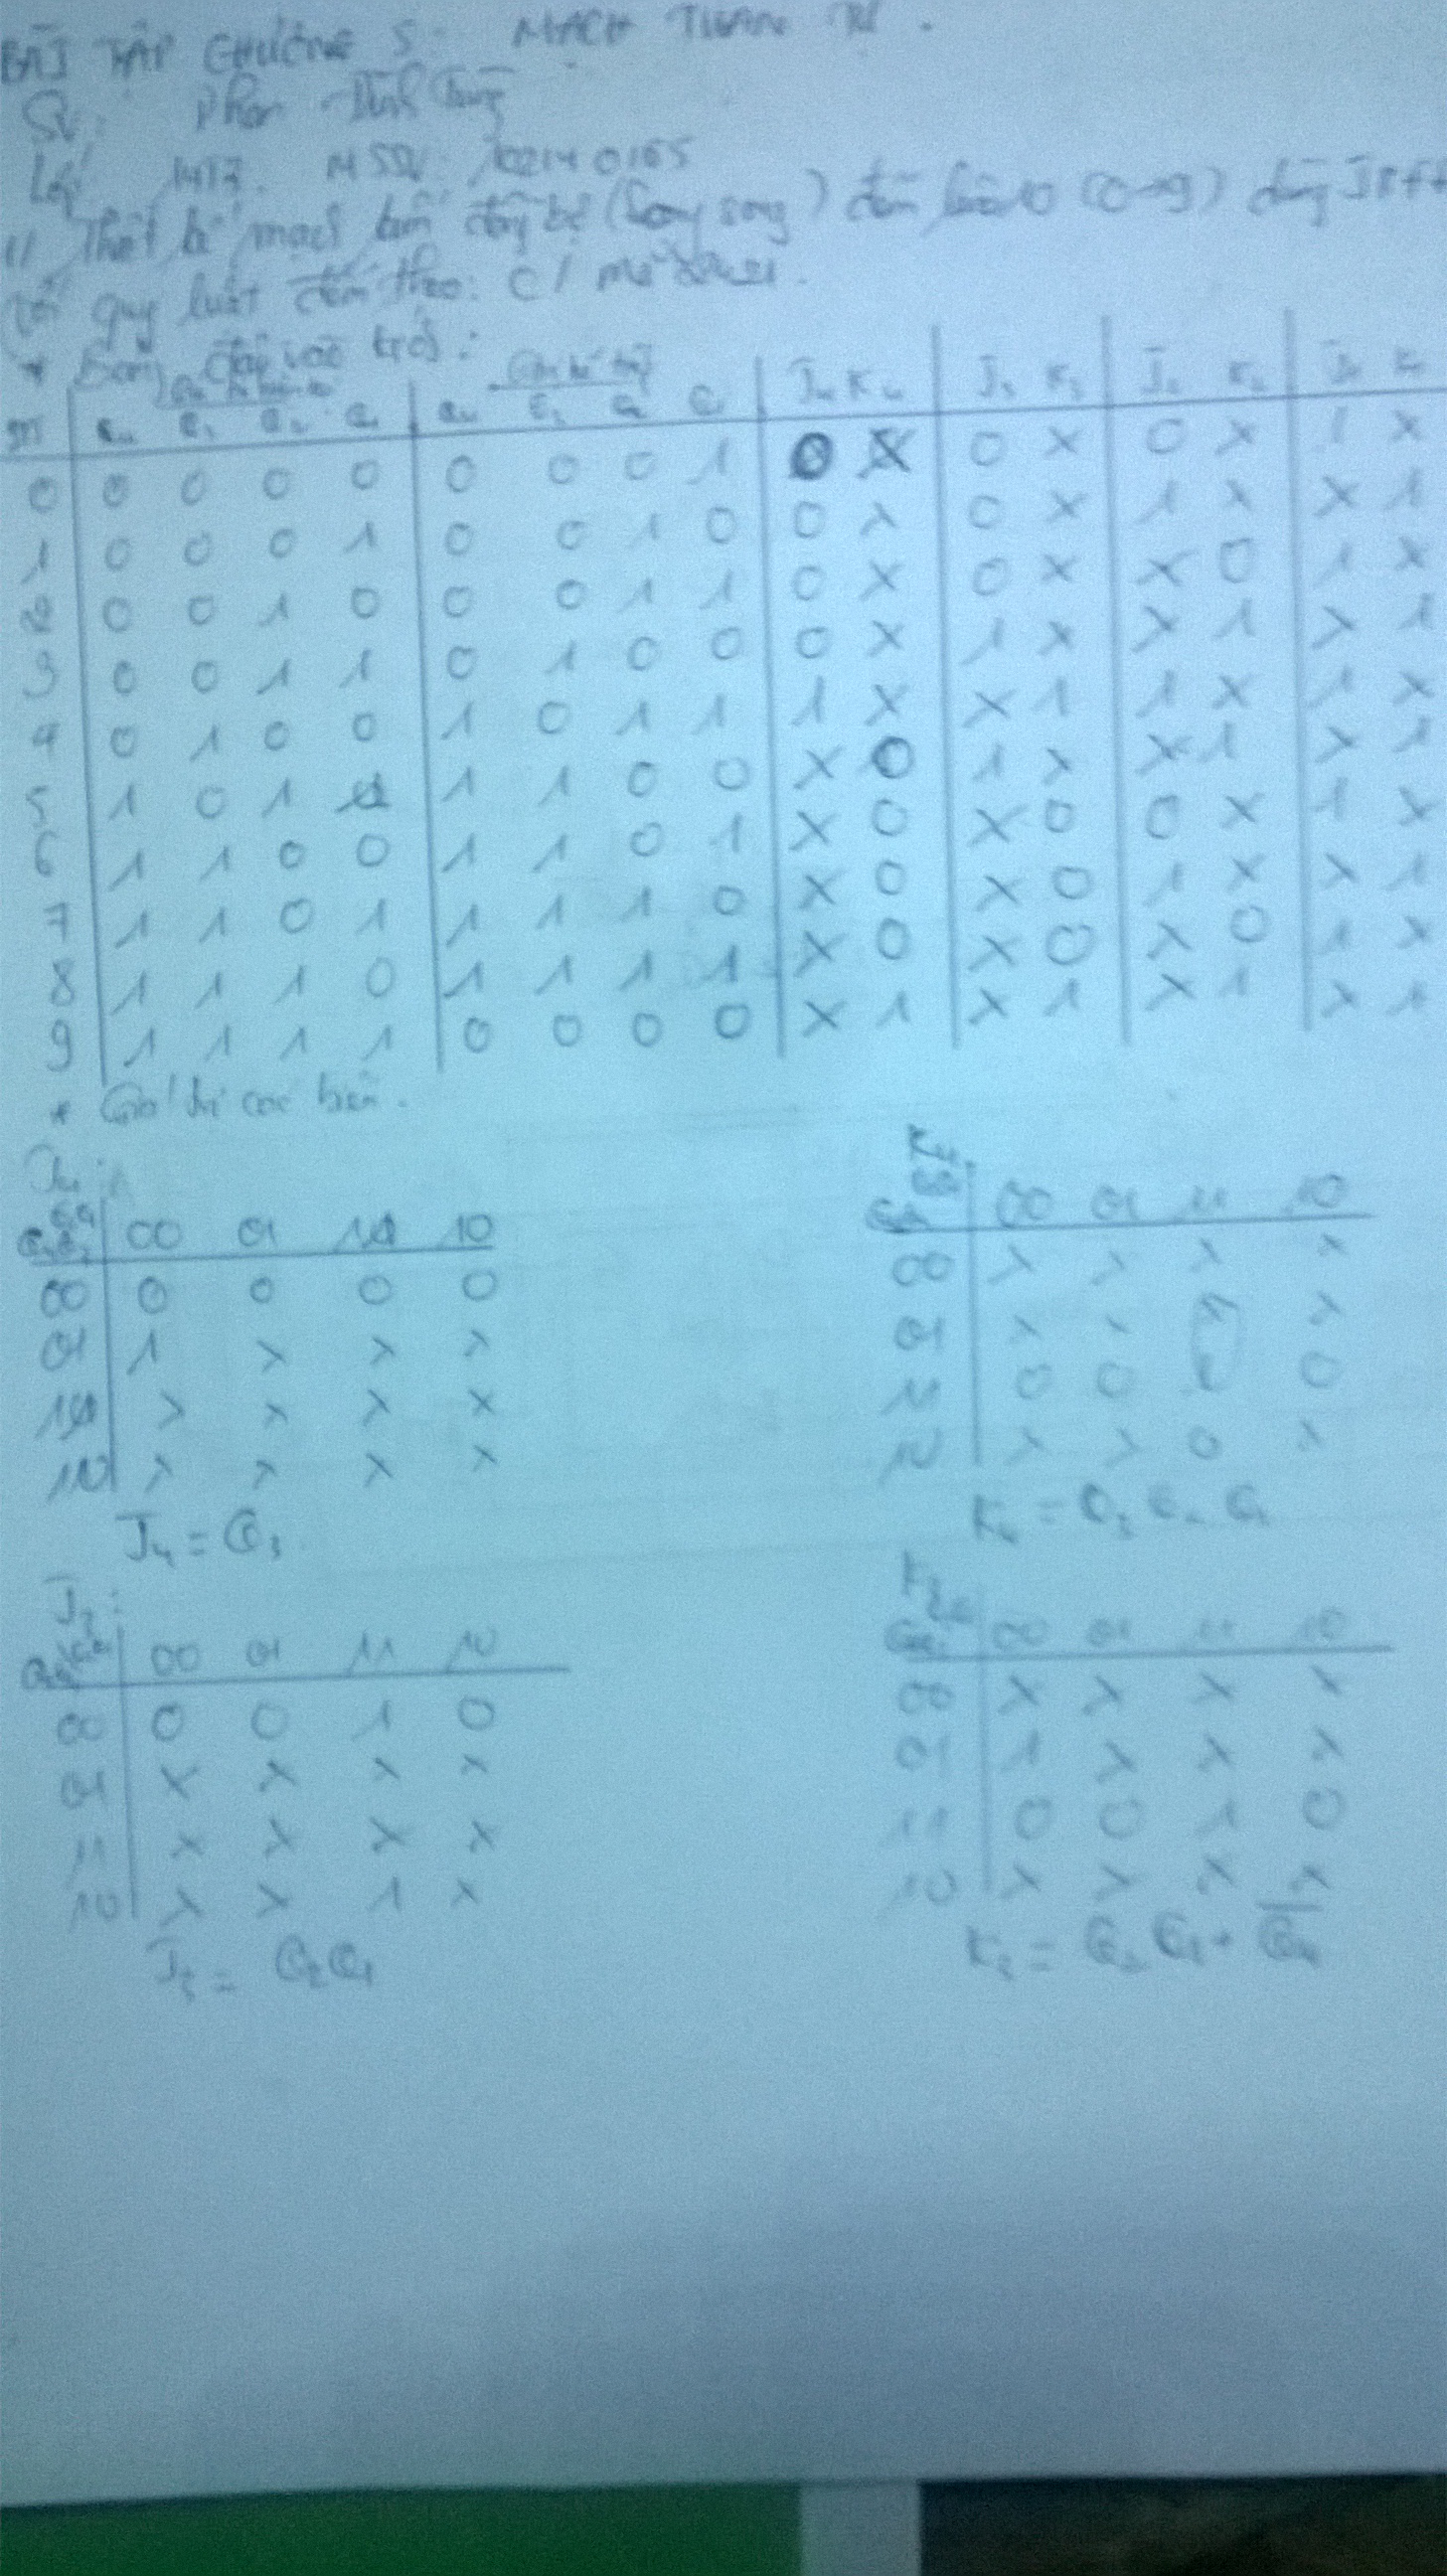 BÀI TẬP CHƯƠNG 5: MẠCH TUẦN TỰ.
SV: Phan
Lớp 14T3. MSSV: 102140165
1/ Thiết kế mạch đếm đồng bộ (song song) đếm (0→9) dùng JKFF
quy luật đếm theo: c/ mã 2421.
* Bảng đầu vào trổi:
Q4 Q3 Q2 Q1 Q4 Q3 Q2 Q1 J4 K4 J3 K3 J2 K2 J1 K1
0 0 0 0 0 0 0 0 1 0 X 0 X 0 X 1 X
1 0 0 0 1 0 0 1 0 0 X 0 X 1 X X 1
2 0 0 1 0 0 0 1 1 0 X 0 X X 0 1 X
3 0 0 1 1 0 1 0 0 0 X 1 X X 1 X 1
4 0 1 0 0 1 0 1 1 1 X X 1 1 X 1 X
5 1 0 1 1 1 1 0 0 X 0 1 X X 1 X 1
6 1 1 0 0 1 1 0 1 X 0 X 0 0 X 1 X
7 1 1 0 1 1 1 1 0 X 0 X 0 1 X X 1
8 1 1 1 0 1 1 1 1 X 0 X 0 X 0 1 X
9 1 1 1 1 0 0 0 0 X 1 X 1 X 1 X 1
* các biến.
J4:
00 01 11 10
00 0 0 0 0
01 1 X X X
11 X X X X
10 X X X X
J4 = Q3
00 01 11 10
00 X X X X
01 X X X X
11 0 0 1 0
10 X X 0 X
K4 = Q3 Q2 Q1
J3:
00 01 11 10
00 0 0 1 0
01 X X X X
11 X X X X
10 X X 1 X
J3 = Q2Q1
K3
00 01 11 10
00 X X X X
01 1 X X X
11 0 0 1 0
10 X X X X
K3 = Q2 Q1 + Q̅4